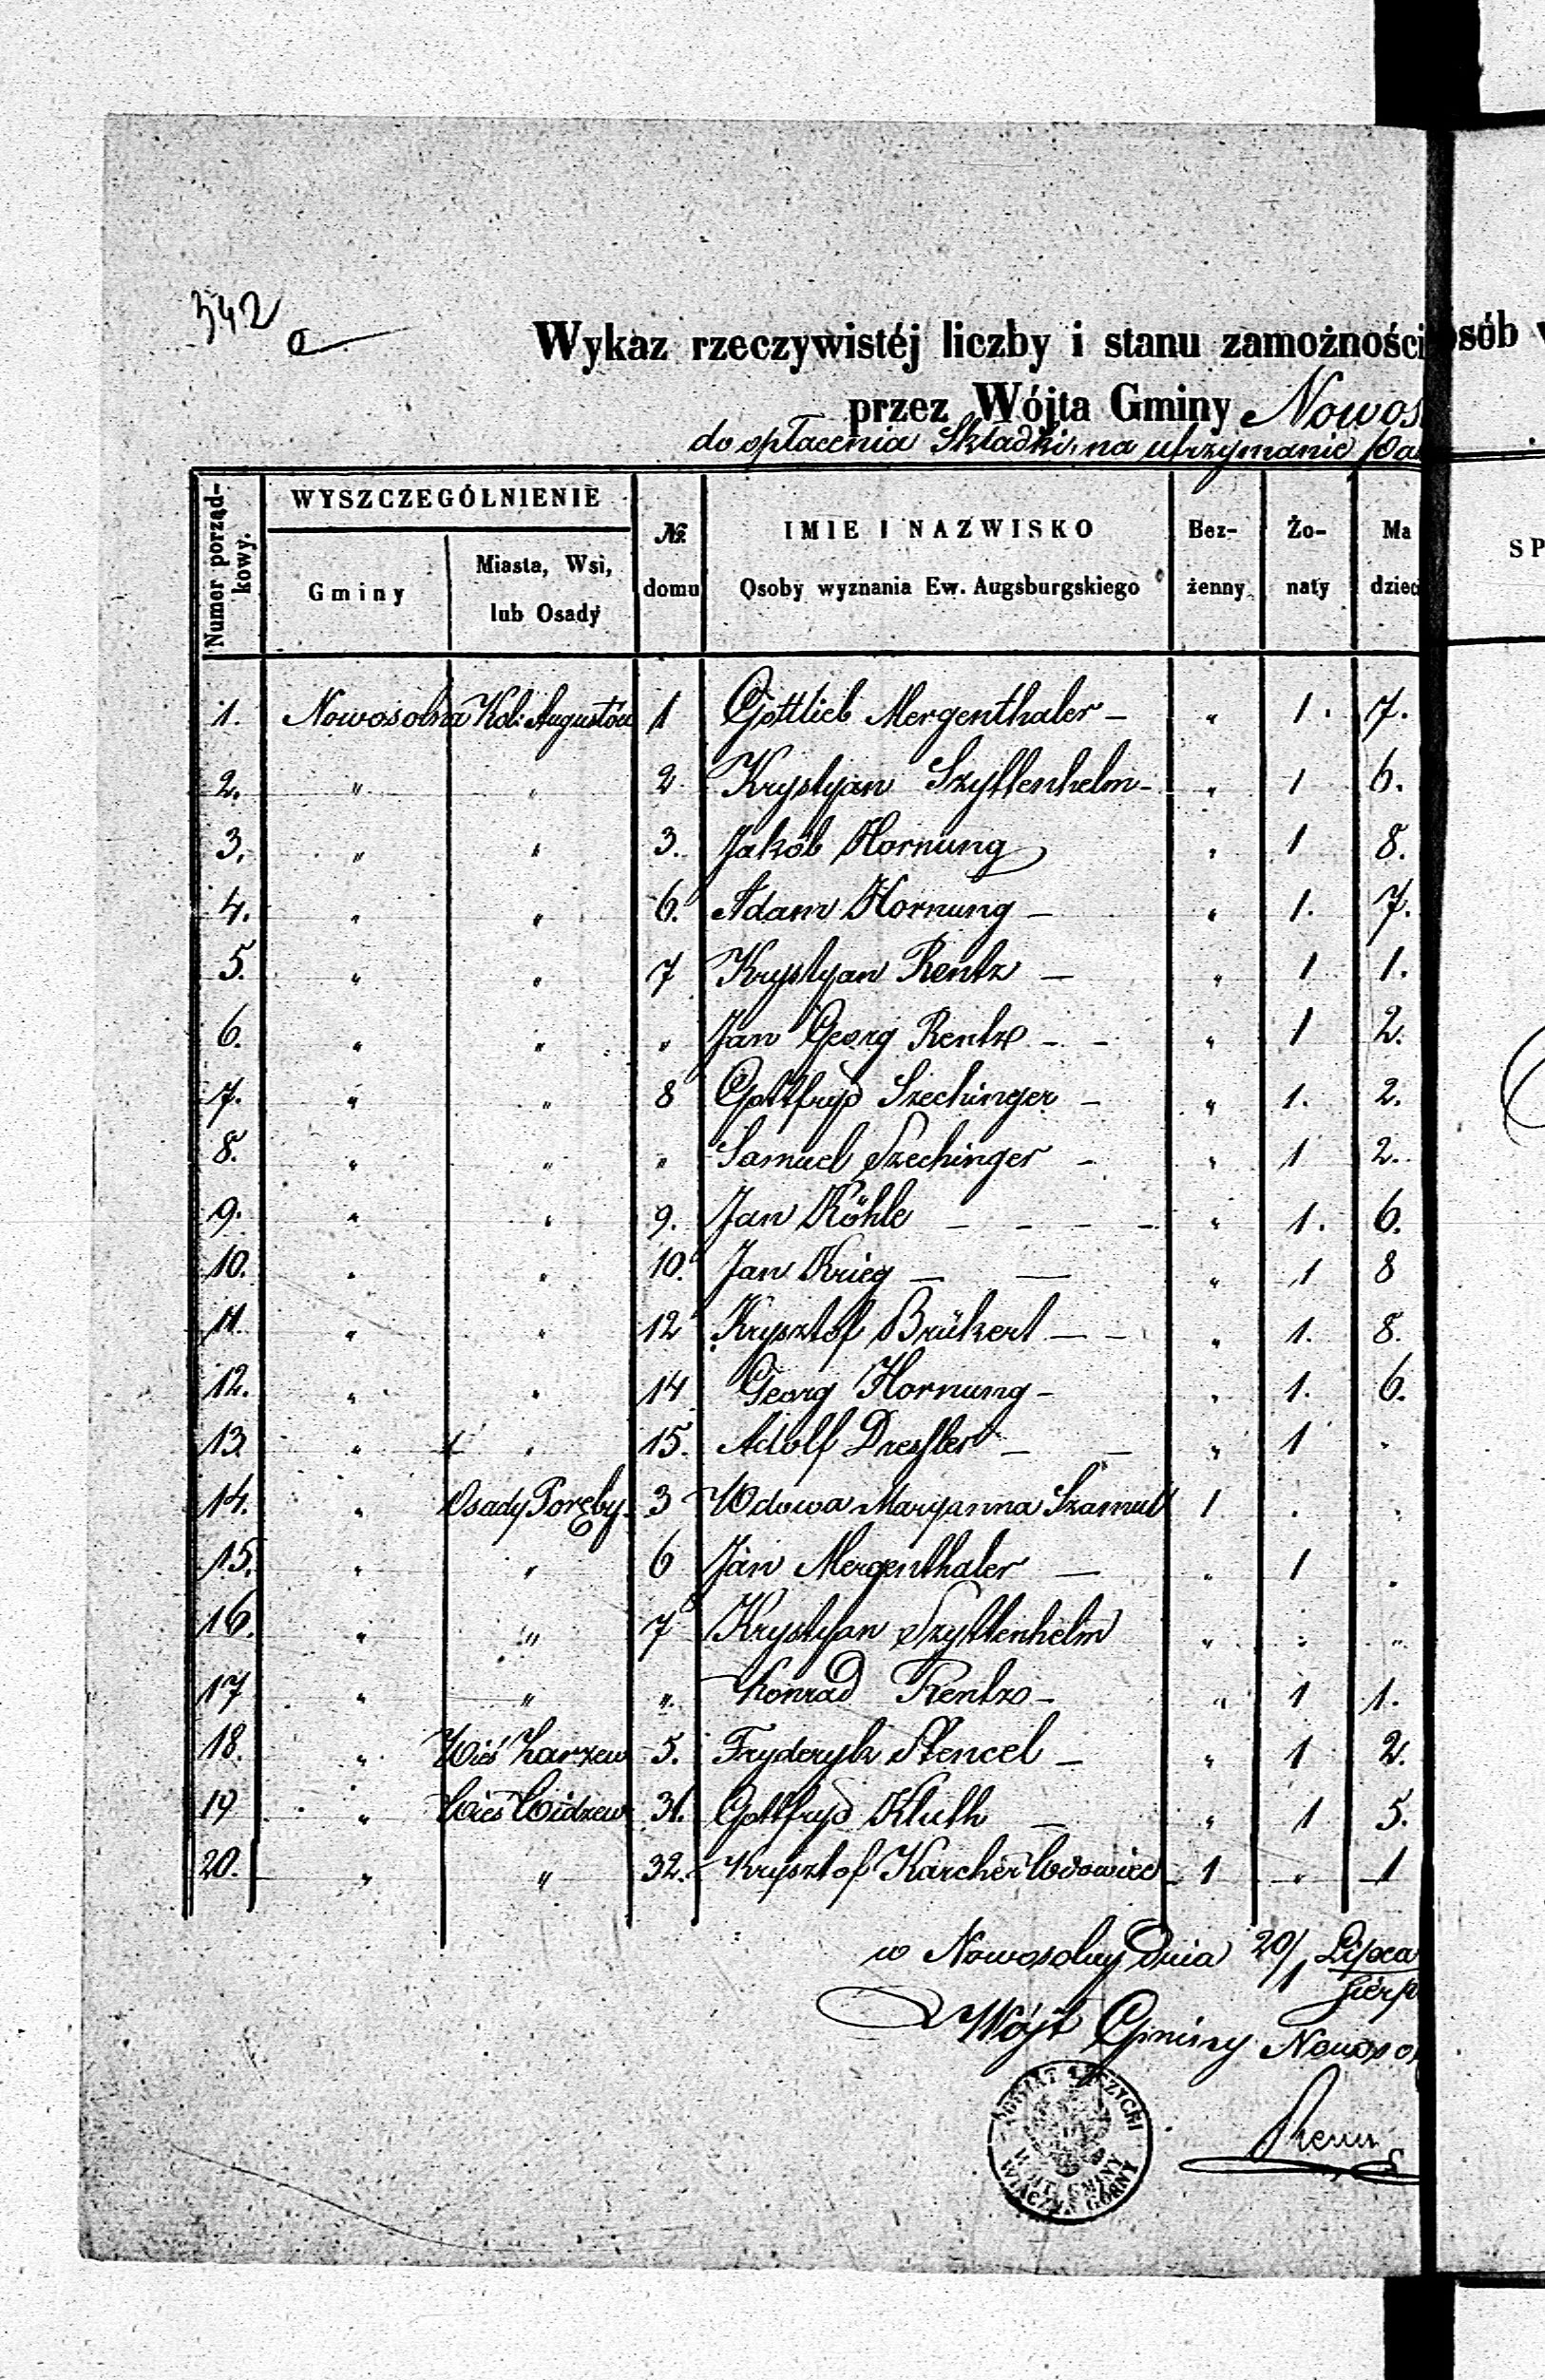 342
a
Wykaz rzeczywistéj liczby i stanu zamożności osób w
przez Wójta Gminy Nowos
do opłacenia Składki, na utrzymanie
Numer porządkowy.
WYSZCZEGÓLNIENIE
Gminy
Miasta, Wsi,
lub Osady
№
domu
IMIE I NAZWISKO
Osoby wyznania Ew. Augsburgskiego
Bez-
żenny
Żo-
naty
Ma
dziec
SP
1. Nowosolna Kol: Augustów 1 Gottlieb Mergenthaler – „ 1. 7.
2. „ „ 2 Krystyan Szyttenhelm – „ 1 6.
3. „ „ 3. Jakób Hornung „ 1 8.
4. „ „ 6. Adam Hornung – „ 1. 7.
5. „ „ 7 Krystyan Rentz – „ 1 1.
6. „ „ „ Jan Georg Rentz – – „ 1 2.
7. „ „ 8 Gottfryd Szechinger – „ 1. 2.
8. „ „ „ Samuel Szechinger – „ 1 2.
9. „ „ 9. Jan Köhle – – – – „ 1. 6.
10. „ „ 10. Jan Krieg – – „ 1 8
11. „ „ 12 Krysztof Brükert – – „ 1. 8.
12. „ „ 14 Georg Hornung – „ 1. 6.
13 „ „ 15. Adolf Dressler – – „ 1 „
14. „ Osady Poręby 3 Wdowa Maryanna Szamul 1 . .
15. „ „ 6 Jan Mergenthaler – „ 1 .
16. „ „ 7 Krystyan Szyttenhelm „ „ „
17 „ „ „ Konrad Rentz – „ 1 1.
18. „ Wieś Zarzew 5. Fryderyk Stencel – „ 1 2.
19 „ Wieś Widzew 31. Gottfryd Kluth – „ 1 5.
20. „ „ 32. Krysztof Karcher Wdowiec 1 „ 1
w Nowosolny dnia 20/1 Lipca
Sierp
Wójt Gminy Nowoso